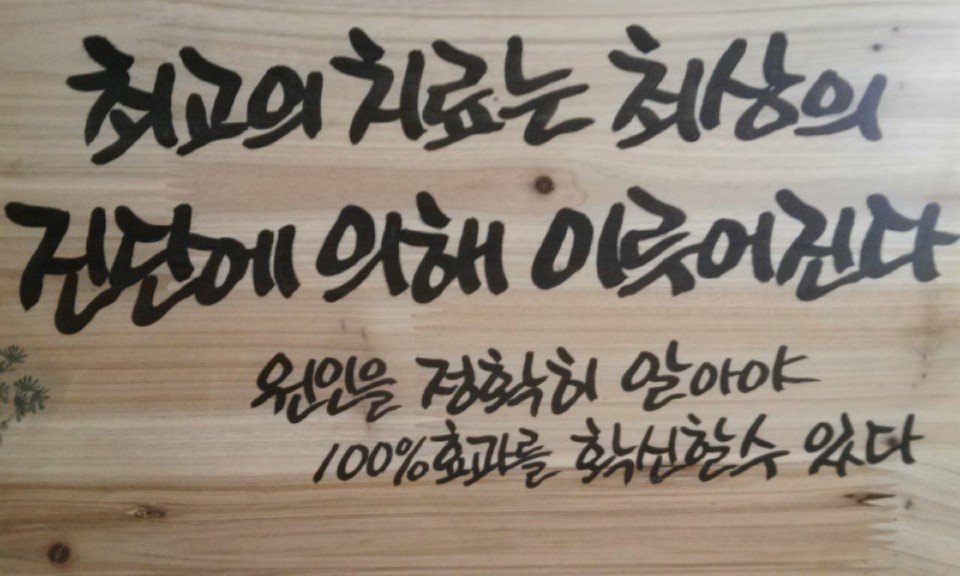 최고의 치료는 최상의
진단에 의해 이루어진다
원인을 정확히 알아야
100%효과를 확신할수 있다